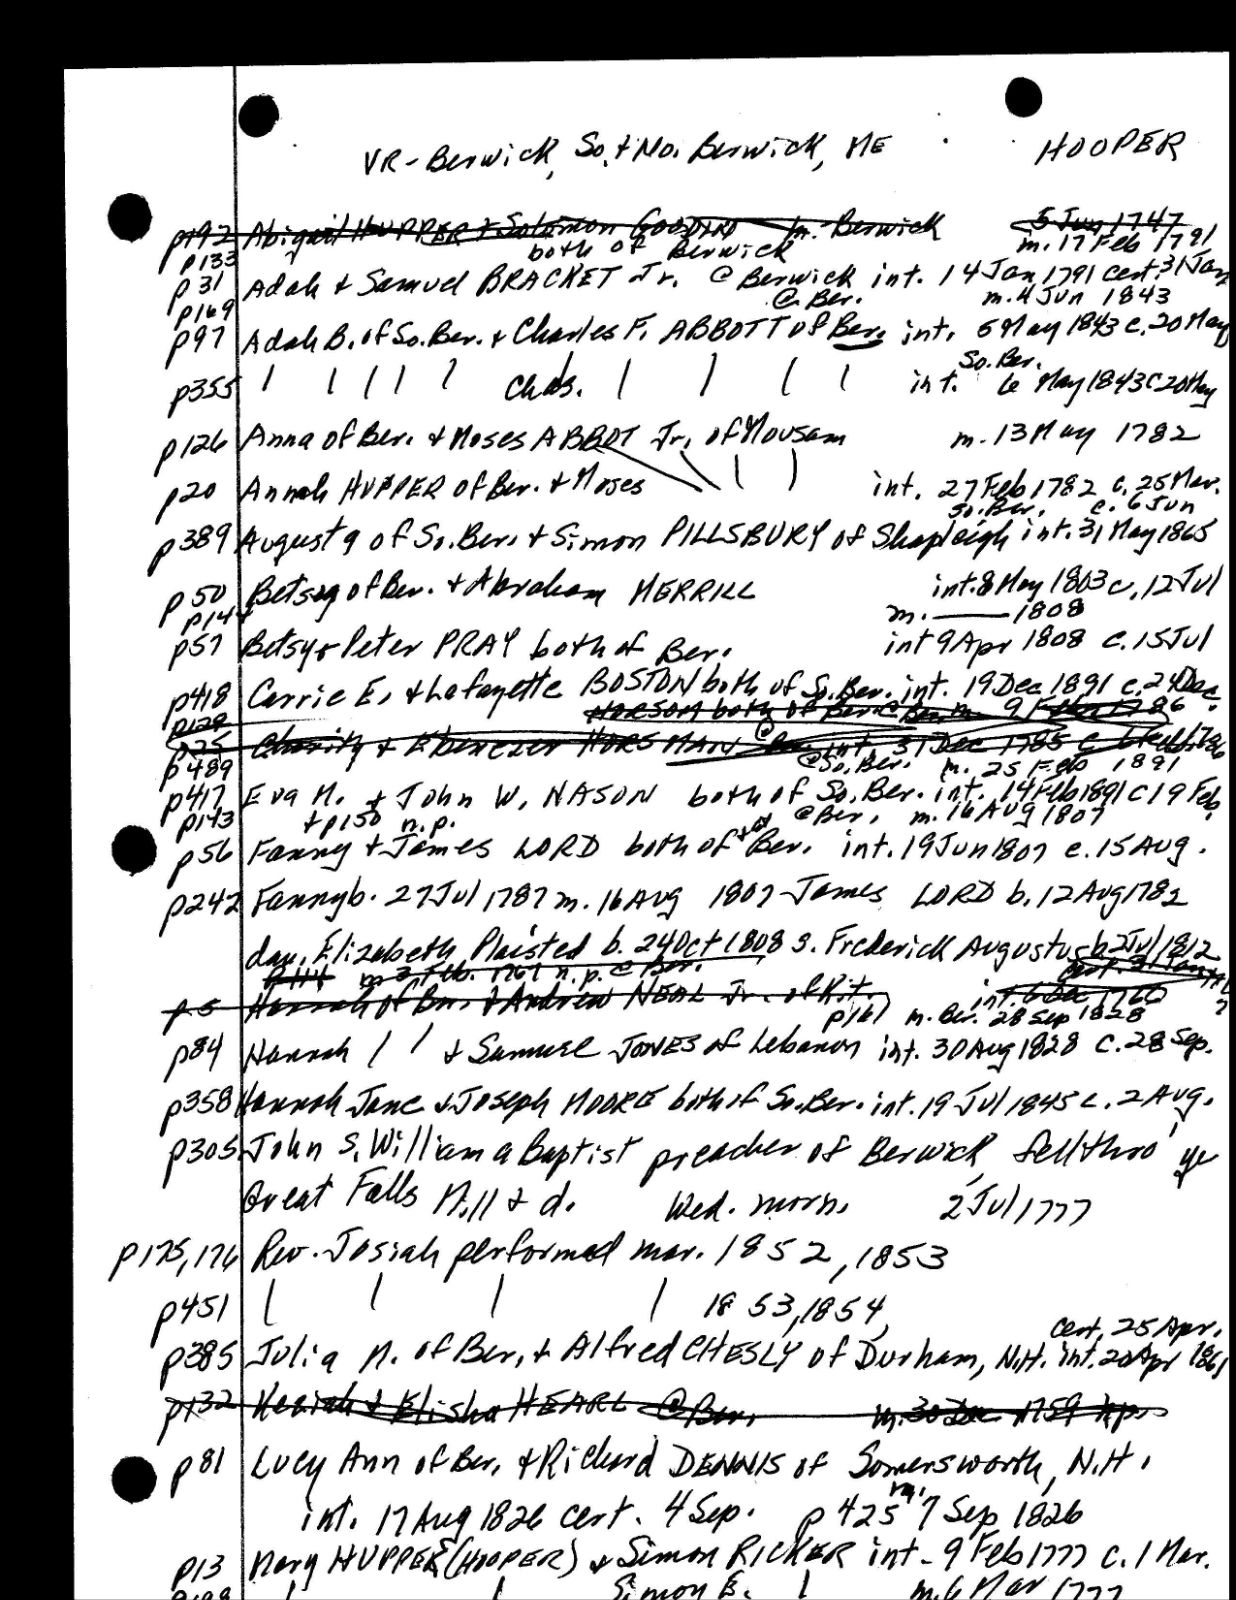 VR - Berwick, So. & No. Berwick, ME HOOPER
p192 Abigail HUPPER & Solomon GOODIN m. Berwick 5 Jun 1747
p133 both of Berwick m. 17 Feb 1791
p31 Adah & Samuel BRACKET Jr. @ Berwick int. 14 Jan 1791 cert. 31 Jan
p169 @ Ber. m. 4 Jun 1843
p97 Adah B. of So. Ber. & Charles F. ABBOTT of Ber. int. 6 May 1843 c. 20 May
So. Ber.
p355 | | | | | Chas. | | | | int. 6 May 1843 c 20 May
p126 Anna of Ber. & Moses ABBOT Jr. of Mousam m. 13 May 1782
p20 Annah HUPPER of Ber. & Moses int. 27 Feb 1782 c. 25 Mar.
So. Ber. c. 6 Jun
p389 Augusta of So. Ber. & Simon PILLSBURY of Shapleigh int. 31 May 1865
p50 Betsey of Ber. & Abraham MERRILL int. 8 May 1803 c. 12 Jul
p144 m. —— 1808
p57 Betsy & Peter PRAY both of Ber. int 9 Apr 1808 c. 15 Jul
p418 Carrie E. & Lafayette BOSTON both of So. Ber. int. 19 Dec 1891 c. 24 Dec.
p129 HORSOM both of Ber @ Ber. m. 9 1786
p25 Charity & Ebenezer HORSMAN int. 31 Dec 1785 c
p489 @ So. Ber. m. 25 Feb 1891
p417 Eva M. & John W. NASON both of So. Ber. int. 14 Feb 1891 c 19 Feb.
p143 & p150 n.p. @ Ber. m. 16 Aug 1807
p56 Fanny & James LORD both of Ber. int. 19 Jun 1807 c. 15 Aug.
p242 Fanny b. 27 Jul 1787 m. 16 Aug 1807 James LORD b. 12 Aug 1782
dau. Elizabeth Plaisted b. 24 Oct 1808 s. Frederick Augustus b 2 Jul 1812
p114 m 3 Feb. 1761 n.p. @ Ber. cert. 31 Jan
p.5 Hannah of Ber. & Andrew NEAL Jr. of Kit. int. 6 Dec 1760
p161 m. Ber. 28 Sep 1828
p84 Hannah | | & Samuel JONES of Lebanon int. 30 Aug 1828 c. 28 Sep.
p358 Hannah Jane & Joseph MOORE both of So. Ber. int. 19 Jul 1845 c. 2 Aug.
p305 John s. William a Baptist preacher of Berwick, fell thro' ye
Great Falls Mill & d. Wed. morn. 2 Jul 1777
p175,176 Rev. Josiah performed mar. 1852, 1853
p451 | | | | 1853, 1854
cert. 25 Apr.
p385 Julia M. of Ber. & Alfred CHESLY of Durham, N.H. int. 20 Apr 1861
p132 Keziah & Elisha HEARL @ Ber. m. 30 Dec 1759 n.p.
p81 Lucy Ann of Ber. & Richard DENNIS of Somersworth, N.H.
int. 17 Aug 1826 cert. 4 Sep. p425 m. 7 Sep 1826
p13 Mary HUPPER (HOOPER) & Simon RICKER int. 9 Feb 1777 c. 1 Mar.
| | Simon E. | m. 6 Mar 1777